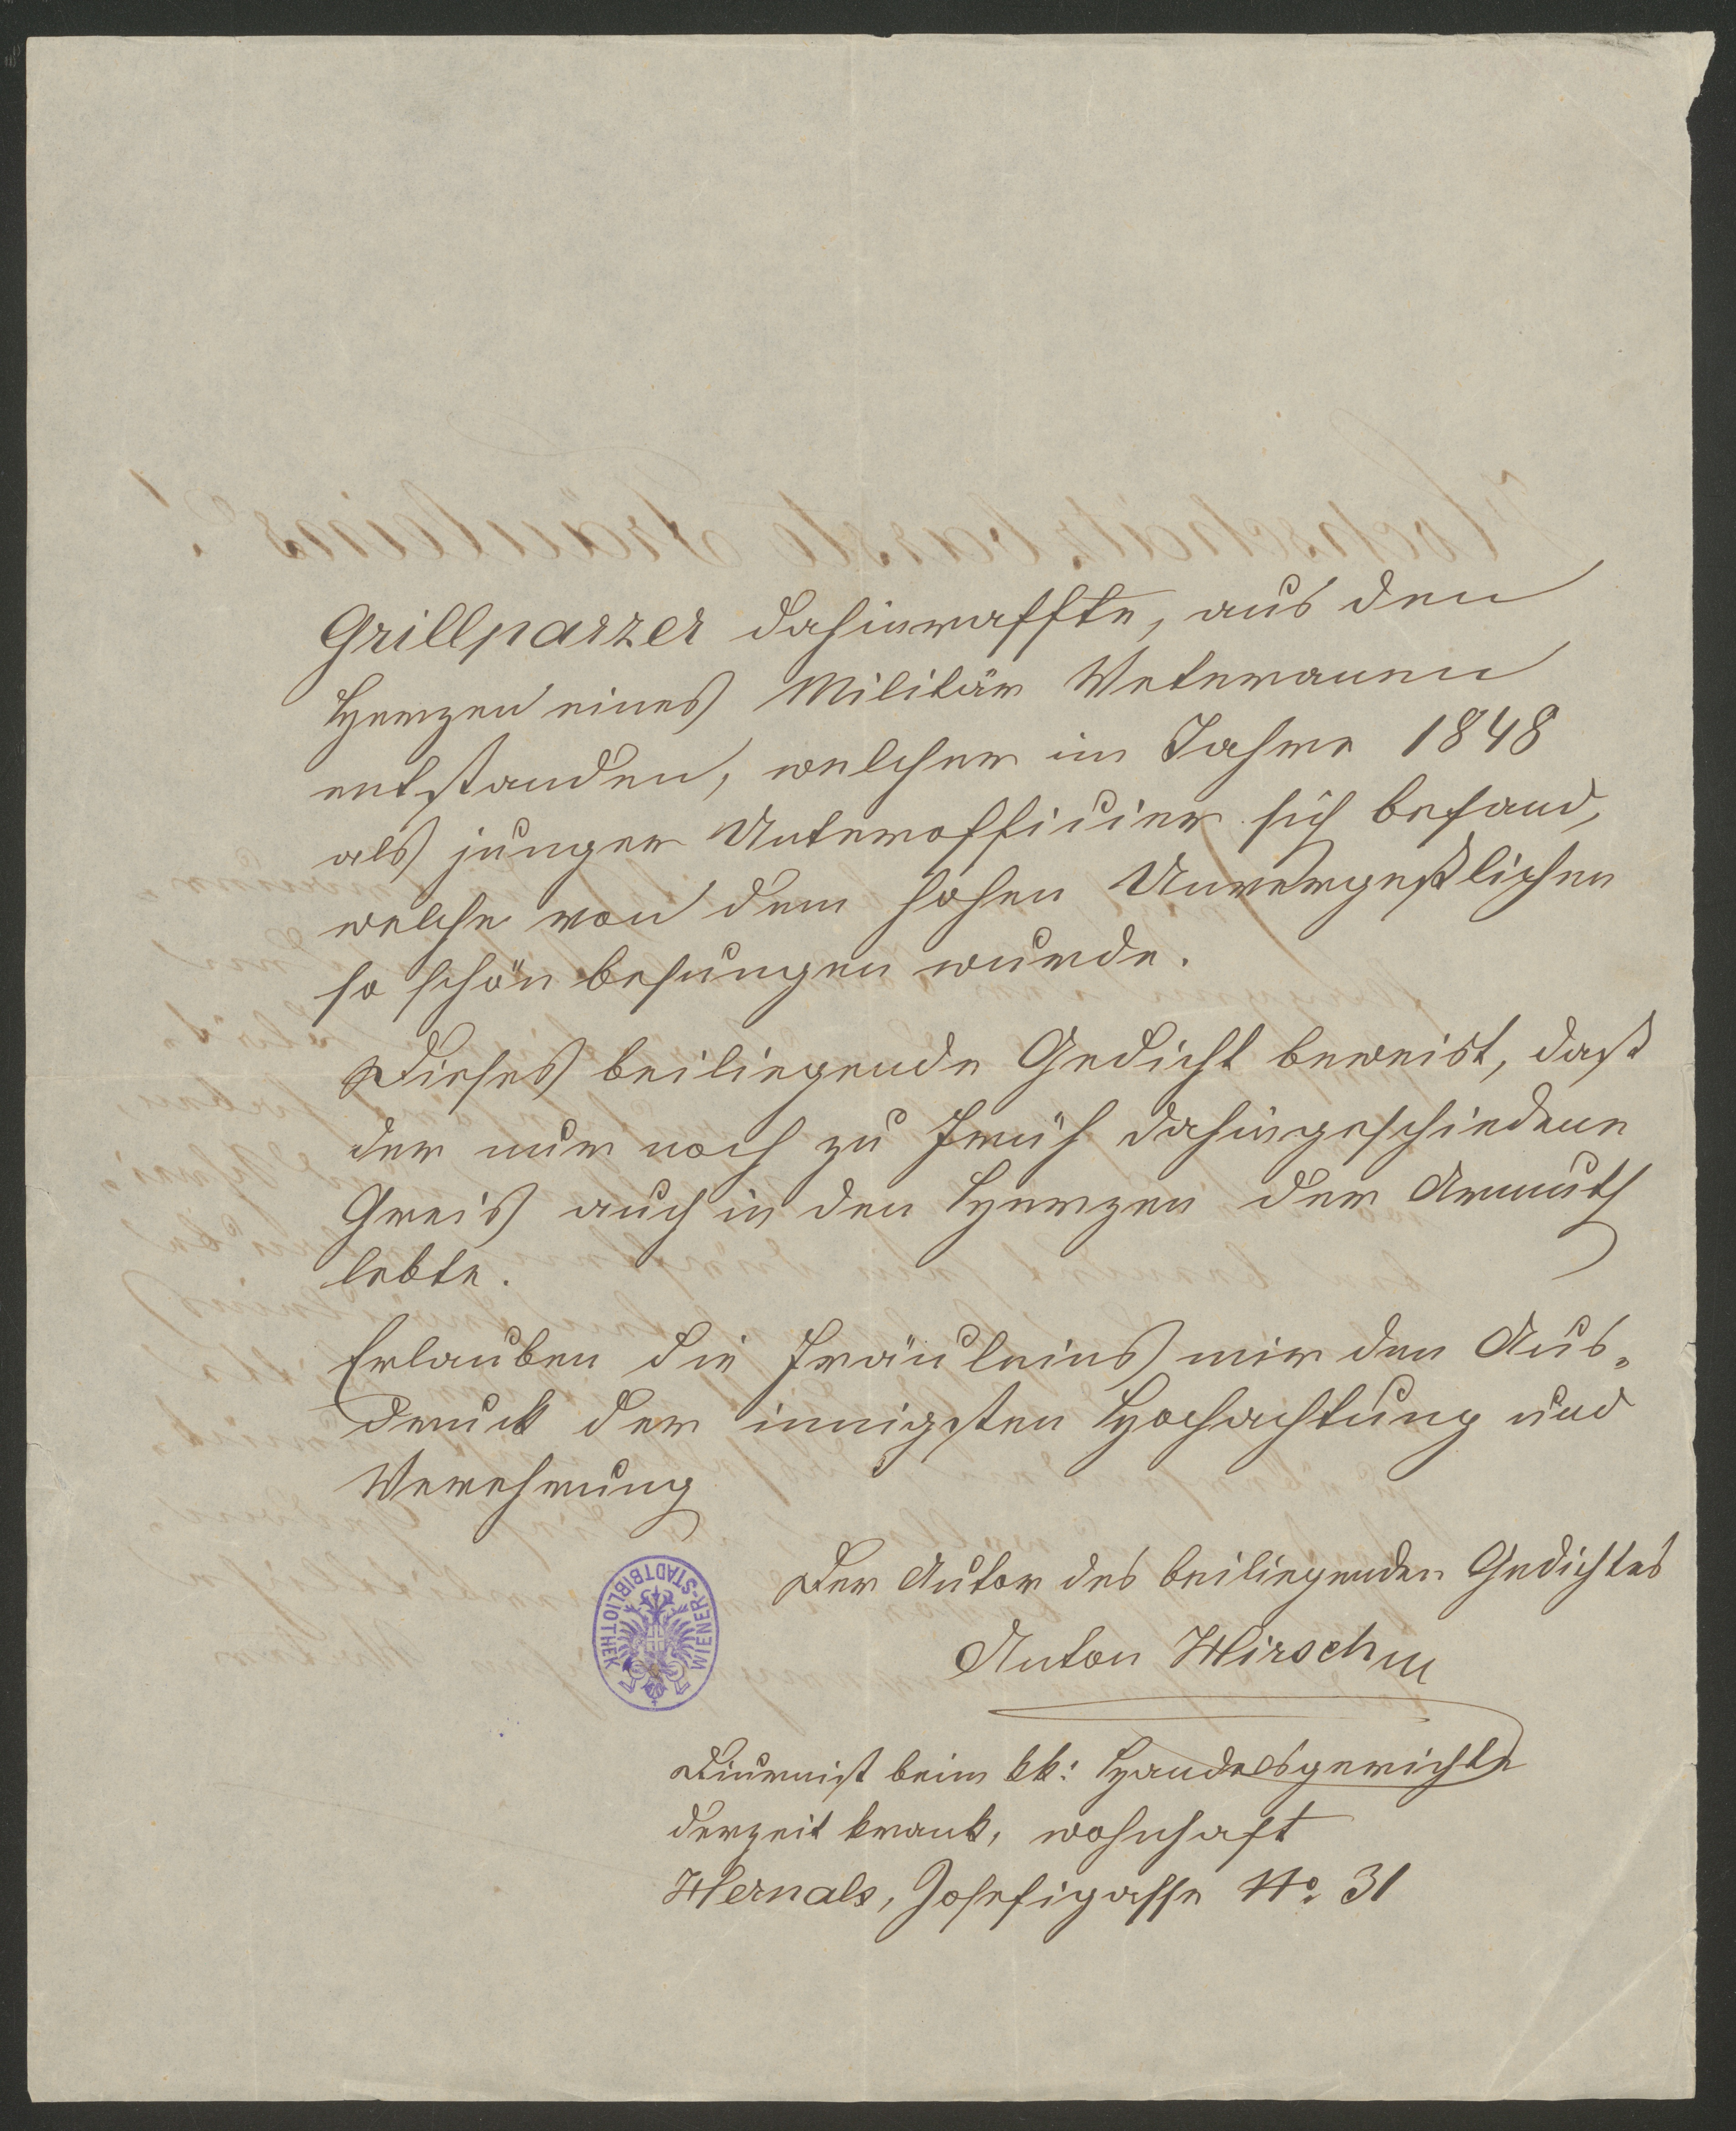 Grillparzer dahinraffte, aus den
Herzen eines Militär Veteranen
entstanden, welcher im Jahre 1848
als junger Unterofficier sich befand,
welche von dem hohen Unvergeßlichen
so schön besungen wurde.
Dieses beiliegende Gedicht beweist, daß
der nur noch zu früh dahingeschiedene
Greis auch in den Herzen der Armuth
lebte.
Erlauben die Fräuleins mir den Aus-
druck der innigsten Hochachtung und
Verehrung
Der Autor des beiliegenden Gedichtes
Anton Hirsch
Diurnist beim kk: Handelsgerichte
derzeit krank, wohnhaft
Hernals, Josefigasse No. 31
WIENER-STADTBIBLIOTHEK